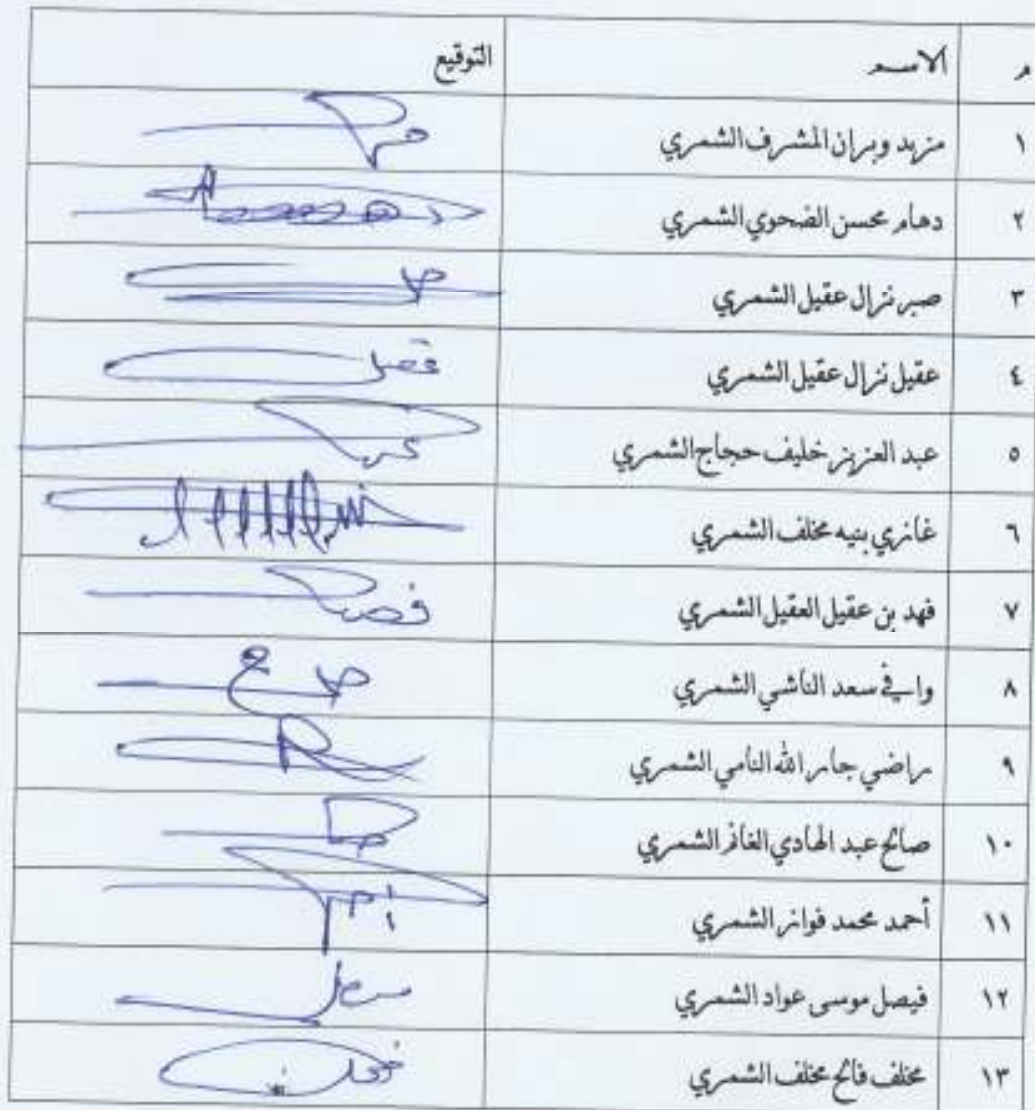 م الاسم التوقيع
١ مزيد وبران المشرف الشمري
٢ دهام محسن الضحوي الشمري
٣ صبر نزال عقيل الشمري
٤ عقيل نزال عقيل الشمري
٥ عبد العزيز خليف حجاج الشمري
٦ غازي بنيه مخلف الشمري
٧ فهد بن عقيل العقيل الشمري
٨ وافي سعد الناشي الشمري
٩ راضي جار الله النامي الشمري
١٠ صالح عبد الهادي الغانم الشمري
١١ أحمد محمد فواز الشمري
١٢ فيصل موسى عواد الشمري
١٣ مخلف فالح مخلف الشمري